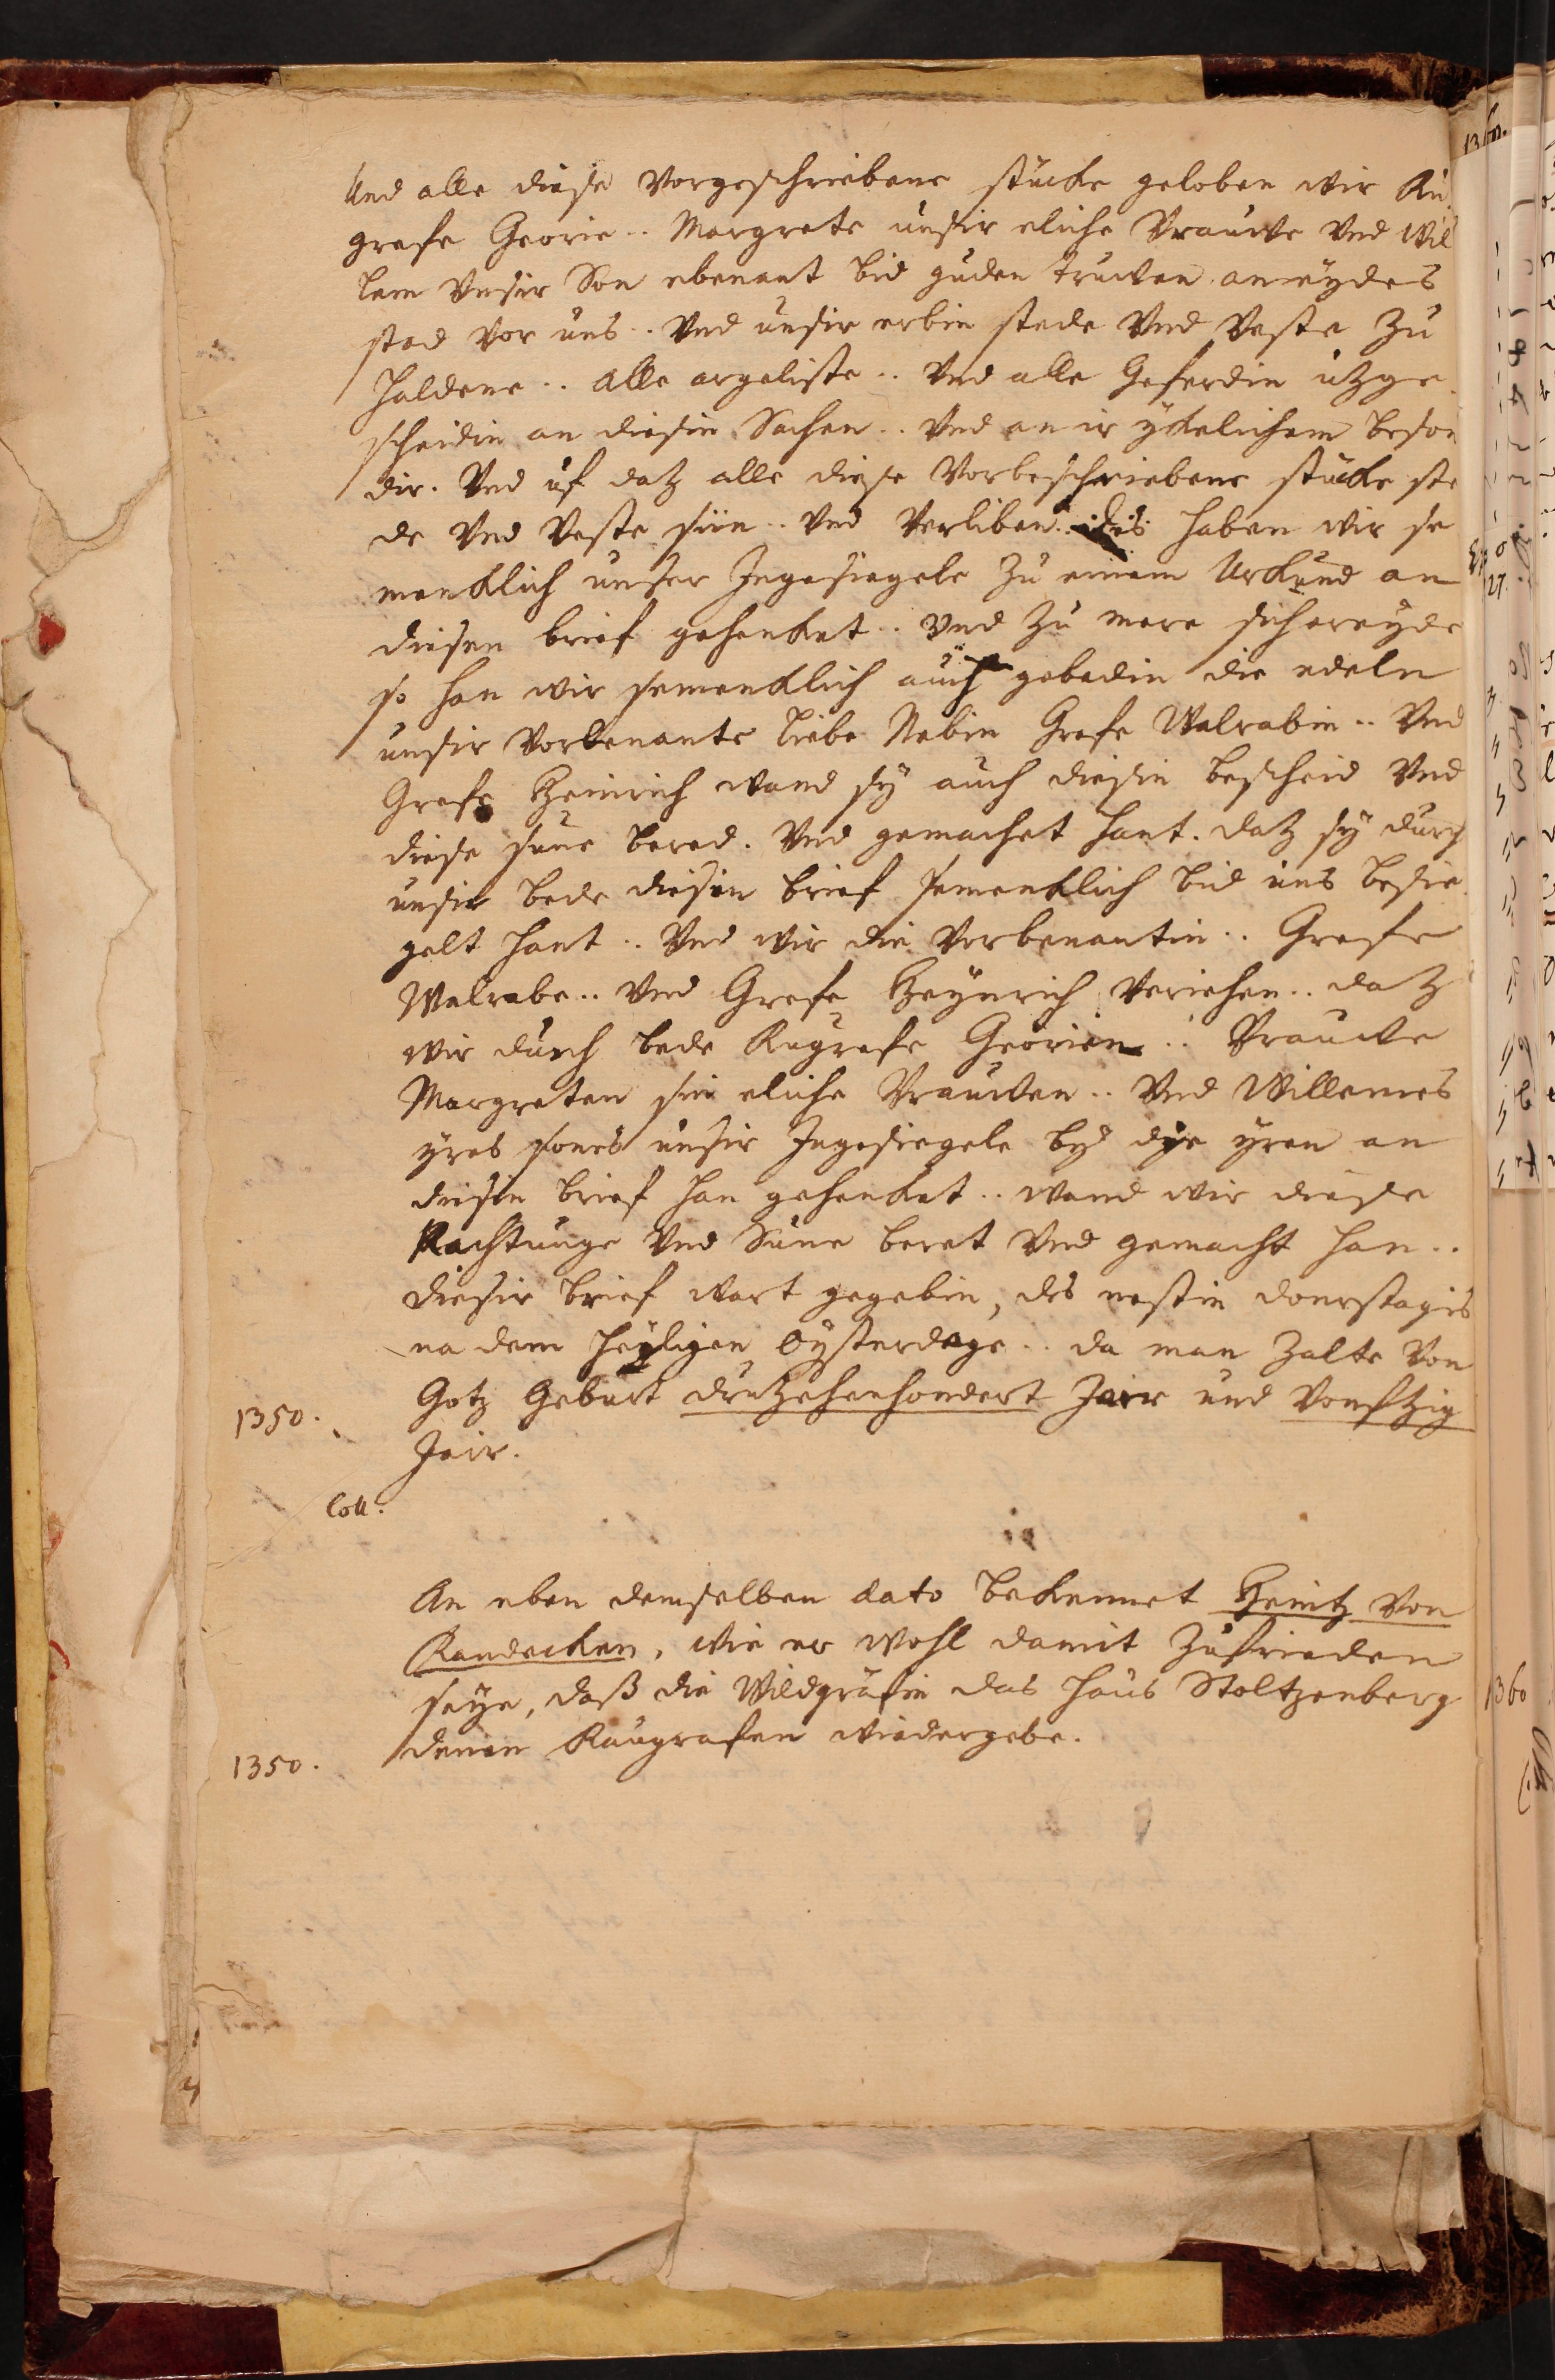 Und alle diese Vorgeschriebene stücke geloben wir Ru
grafe Georie .. Margrete unsir eliche Vrauwe Und Wil
lem Unsir Son ebenant bid guden truwen an eydes
stad vor uns .. Und unsir erbin stede Und Veste Zu
haldene .. alle argeliste .. Und alle Geferdin uzge
scheidin an diesin Sachen .. Und an ir ykelichem beson
dir. Und uf datz alle diese Vorbeschriebene stücke ste
de Und Veste siin .. Und Verliben. des haben wir se
mencklich unser Ingesiegele Zu einem Urkund an
diesen brief gehenket .. Und Zu mere sichereyde
so han wir semencklich auch gebedin die edeln
unsir Vorbenante liebe Nebin Grafe Walrabin .. Und
Grafe Heinrich wand sy auch diesin bescheid Und
diese sune bered. Und gemachet hant. datz sy durch
unsir bede diesin brief semencklich bid uns besie
gelt hant .. Und wir die Vorbenantin .. Grafe
Walrabe .. Und Grafe Heynrich Veriehen .. datz
wir durch bede Rugrafe Georien .. Vrauwe
Margreten sin eliche Vrauwen .. Und Willemes
yres sones unsir Ingesiegele by dye yren an
diesin brief han gehenket .. wand wir diese
Rachtunge Und Sune beret Und gemacht han ..
diesir brief wart gegebin, des nestin donrstagis
na dem heyligen Oysterdage .. da man Zalte Von
1350. Gotz Geburt drutzehenhondert Jare und Vonftzig
Jair.
Coll.
An eben demselben dato bekennet Heintz Von
Randecken, wie er wohl damit Zufrieden
seye, daß die Wildgräfin das Haus Stoltzenberg
1350. denen Raugrafen wiedergebe.
1360